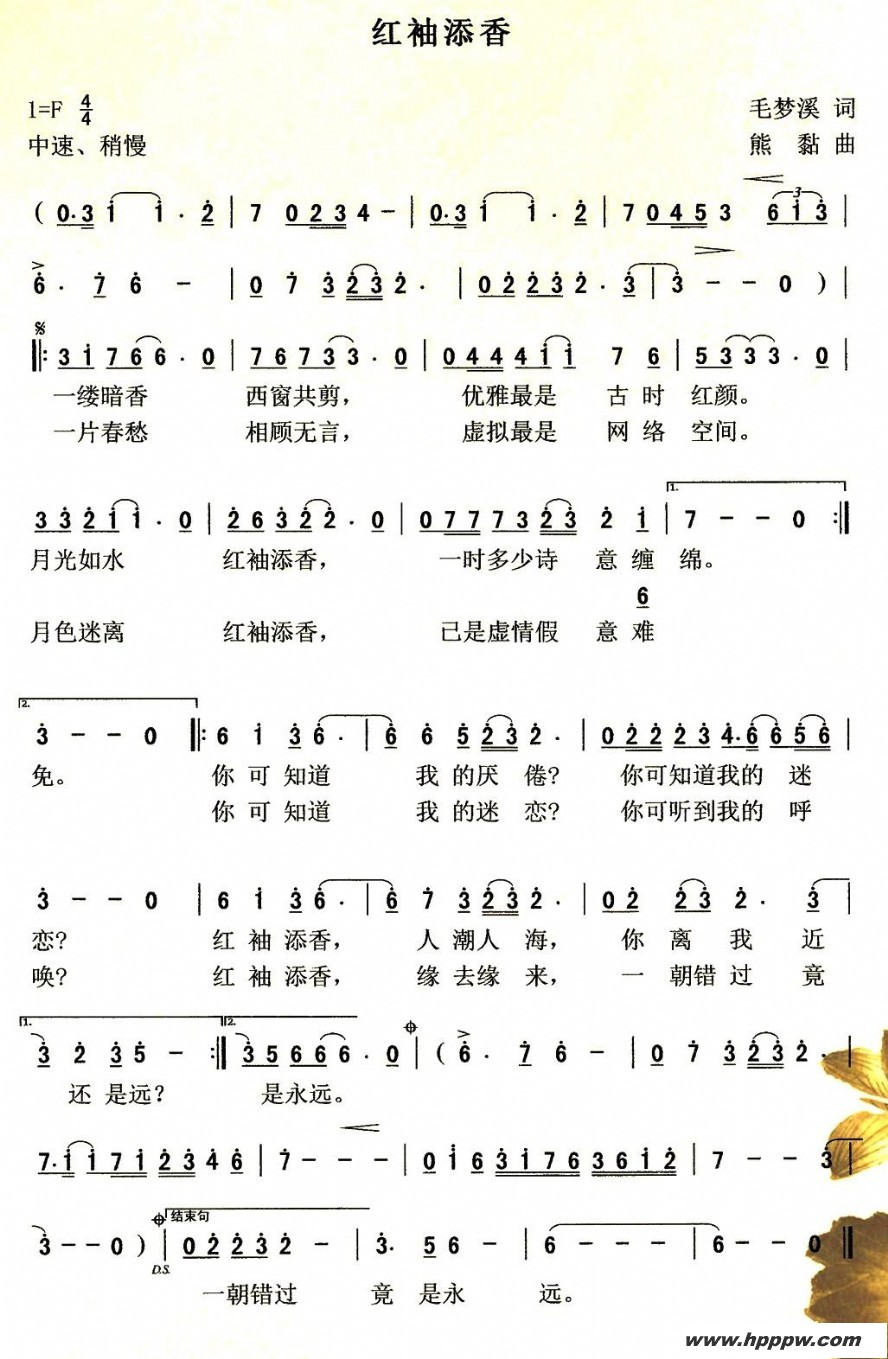 红袖添香
1=F 4/4
毛梦溪 词
中速、稍慢
熊 黏 曲
( 0·3 1 1·2 | 7 0234- | 0·3 1 1·2 | 7 0453 613 |
6· 7 6 - | 0 7 323 2· | 0223 2· 3 | 3 - - 0 ) |
3 1 7 6 6· 0 | 7 6 7 3 3· 0 | 0 4 4 4 1 1 7 6 | 5 3 3 3· 0
一缕暗香 西窗共剪， 优雅最是 古 时 红颜。
一片春愁 相顾无言， 虚拟最是 网 络 空间。
1.
3 3 2 1 1· 0 | 2 6 3 2 2· 0 | 0 7 7 7 3 2 3 2 1 | 7 - - 0 :||
月光如水 红袖添香， 一时多少诗 意 缠 绵。
6
月色迷离 红袖添香， 已是虚情假 意 难
2.
3 - - 0 ||: 6 1 3 6· | 6 6 5 2 3 2· | 0 2 2 2 3 4· 6 6 5 6 |
免。 你 可 知道 我 的厌 倦? 你可知道我的 迷
你 可 知道 我 的迷 恋? 你可听到我的 呼
3 - - 0 | 6 1 3 6· | 6 7 3 2 3 2· | 0 2 2 3 2· 3 |
恋? 红 袖 添香， 人 潮人 海， 你 离 我 近
唤? 红 袖 添香， 缘 去缘 来， 一 朝错 过 竟
1. 2.
3 2 3 5 - :|| 3 5 6 6 6· 0 | ( 6· 7 6 - | 0 7 3 2 3 2·
还 是远？ 是永远。
7· 1 1 7 1 2 3 4 6 | 7 - - - | 0 1 6 3 1 7 6 3 6 1 2 | 7 - - 3 |
结束句
3 - - 0 ) | 0 2 2 3 2 - | 3· 5 6 - | 6 - - - | 6 - - 0 ||
D.S.
一朝错过 竟 是永 远。
www.hpppw.com